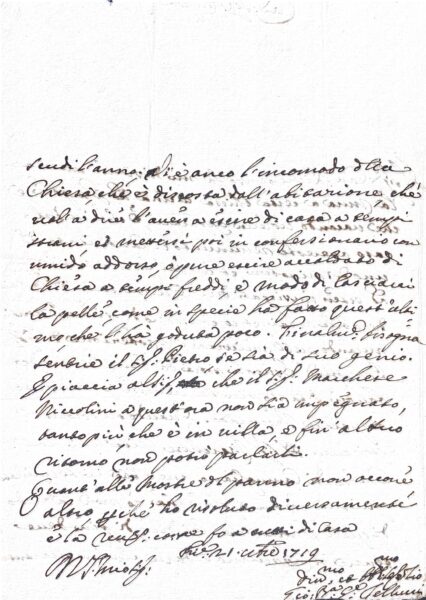 scudi l'anno; Vi è anco l'incomodo della
Chiesa che è discosta dall'abitazione che
vol a dire l'avere a escire di casa a tempi
strani et mettersi poi in confessionario con
umido addosso, oppure escire di
Chiesa a tempi freddi è modo di lasciarci
la pelle come in specie ha fatto quest'ulti
mo che l'ha goduta poco. Finalm.e bisogna
sentire il S.r Pietro se sia di suo genio.
E piaccia al Sig. che il S.r Marchese
Niccolini a quest'ora non sia impegnato,
tanto più che è in villa e fin al suo
ritorno non posso parlarli.
Quant'alle mostre di panno non occorre
altro perche ho risoluto diversamente
e la come fo a tutti di casa
21 1719